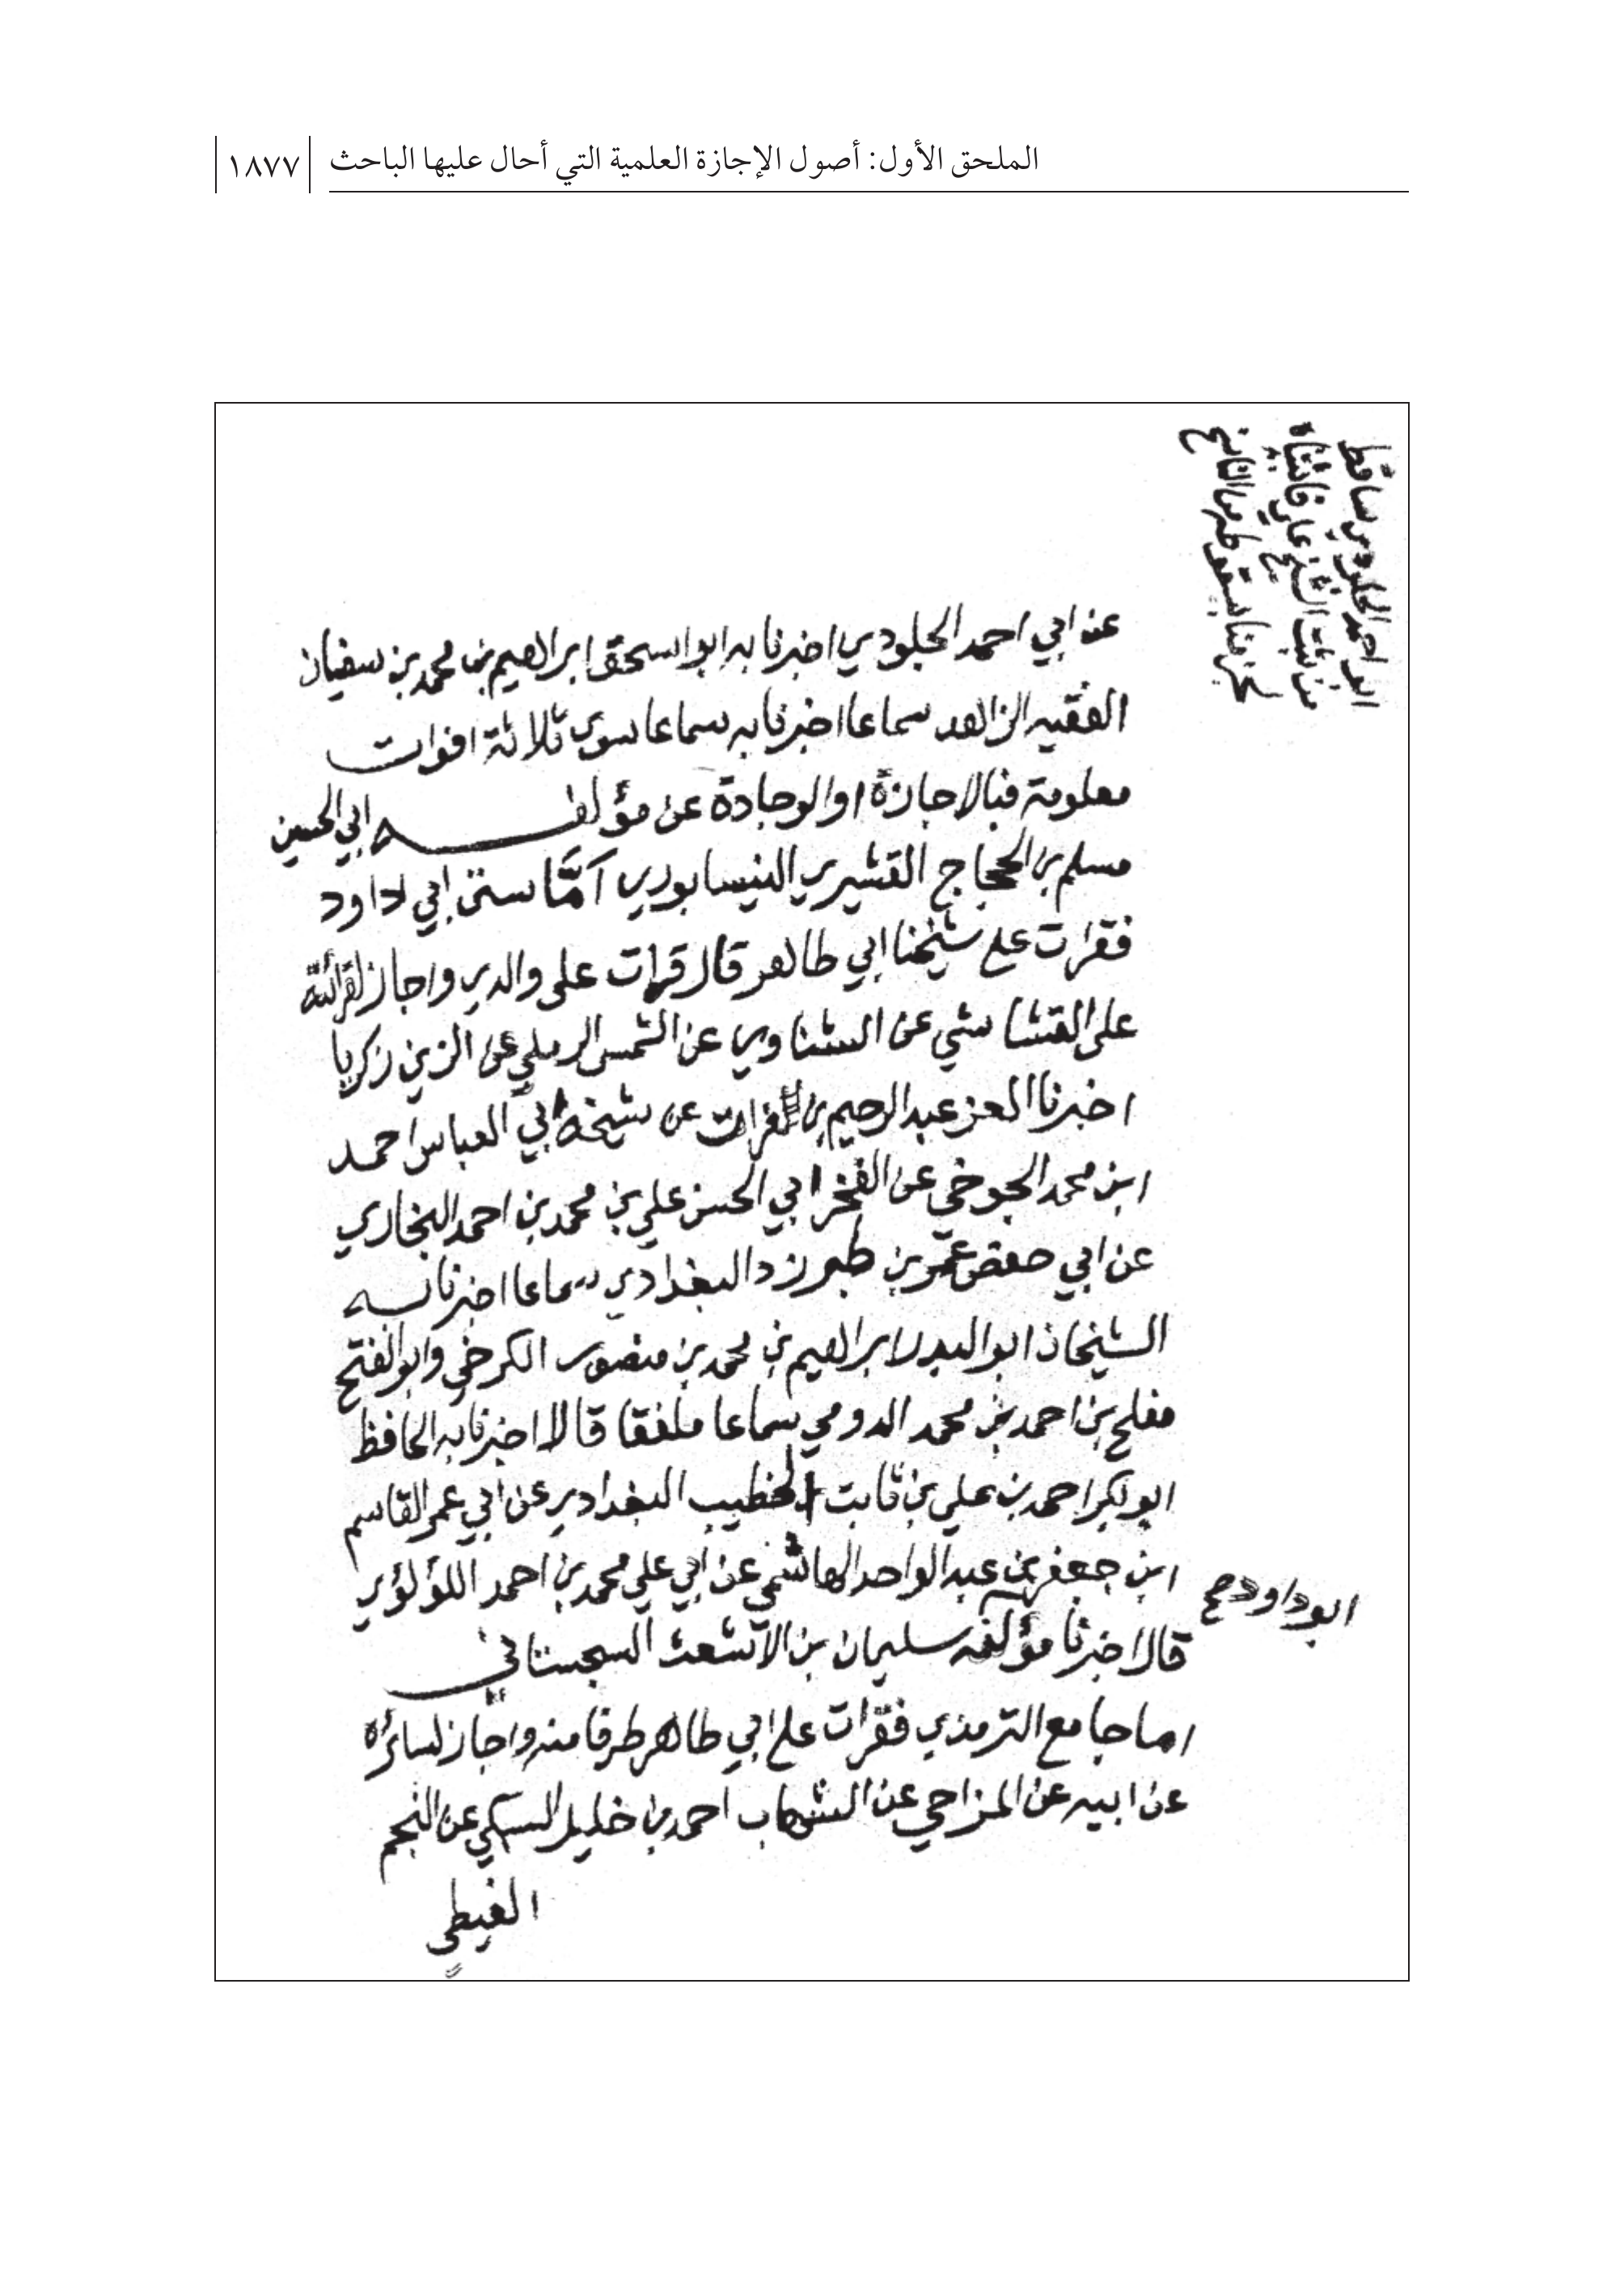 الملحق الأول: أصول الإجازة العلمية التي أحال عليها الباحث
١٨٧٧
ابو احمد الجلودي ساقط
من ثبت الشيخ عابد فاثبتناه
من الناسخ
عن ابي احمد الجلودي اخبرنا به ابو اسحق ابراهيم بن محمد بن سفيان
الفقيه الزاهد سماعا اخبرنا به سماعا سوى ثلاثة افوات
معلومة فبالاجازة او الوجادة عن مؤلفه ابي الحسين
مسلم بن الحجاج القشيري النيسابوري اَمَّا سنن ابي داود
فقرات على شيخنا ابي طاهر قال قرات على والدي واجاز لقرائته
على القشاشي عن الشناوي عن الشمس الرملي عن الزين زكريا
اخبرنا العز عبد الرحيم بن الفرات عن شيخه ابي العباس احمد
ابن محمد الجوخي عن الفخر ابي الحسن علي بن محمد بن احمد البخاري
عن ابي حفص عمر بن طبرزد البغدادي سماعا اخبرنا به
الشيخان ابو البدر ابراهيم بن محمد بن منصور الكرخي وابو الفتح
مفلح بن احمد بن محمد الدومي سماعا ملفقا قالا اخبرنا به الحافظ
ابو بكر احمد بن علي بن ثابت الخطيب البغدادي عن ابي عمر القاسم
ابن جعفر بن عبد الواحد الهاشمي عن ابي علي محمد بن احمد اللؤلؤي
ابو داود صح
قال اخبرنا مؤلفه سليمان بن الاشعث السجستاني
اما جامع الترمذي فقرات على ابي طاهر طرفا منه واجاز لسائره
عن ابيه عن المزاحي عن الشهاب احمد بن خليل السبكي عن النجم
الغيطي